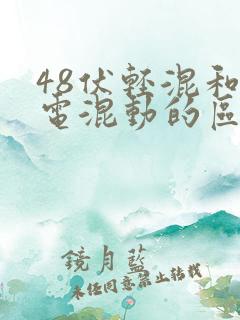 48伏輕混和
電混動的區
鏡月藍
未經同意禁止轉載